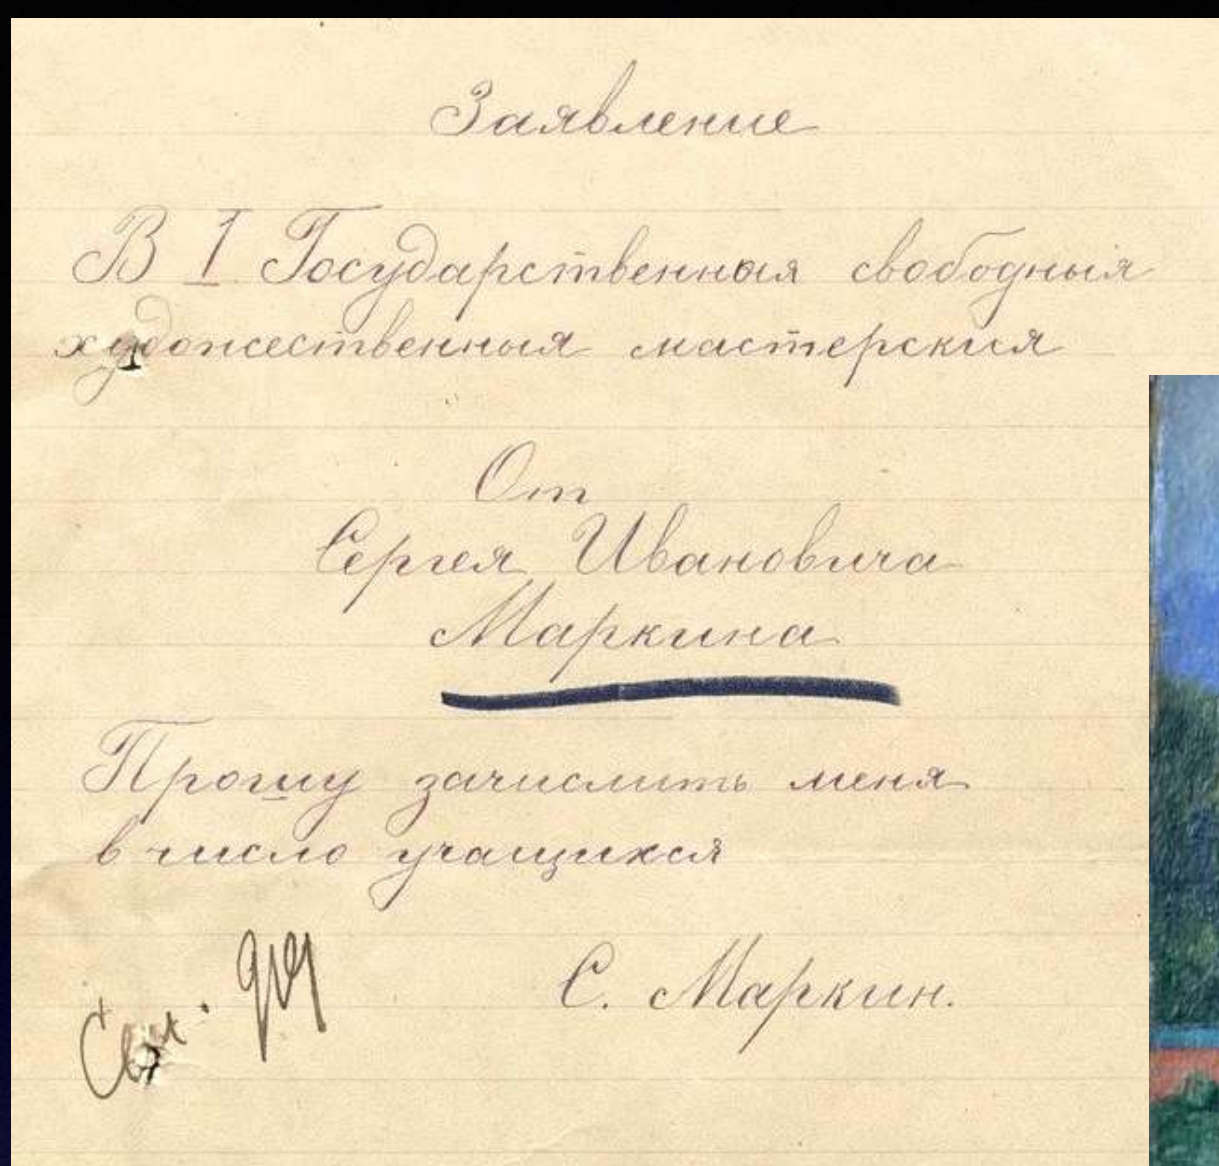 Заявление
В I Государственныя свободныя
художественныя мастерския
От
Сергея Ивановича
Маркина
Прошу зачислить меня
в число учащихся
С. Маркин.